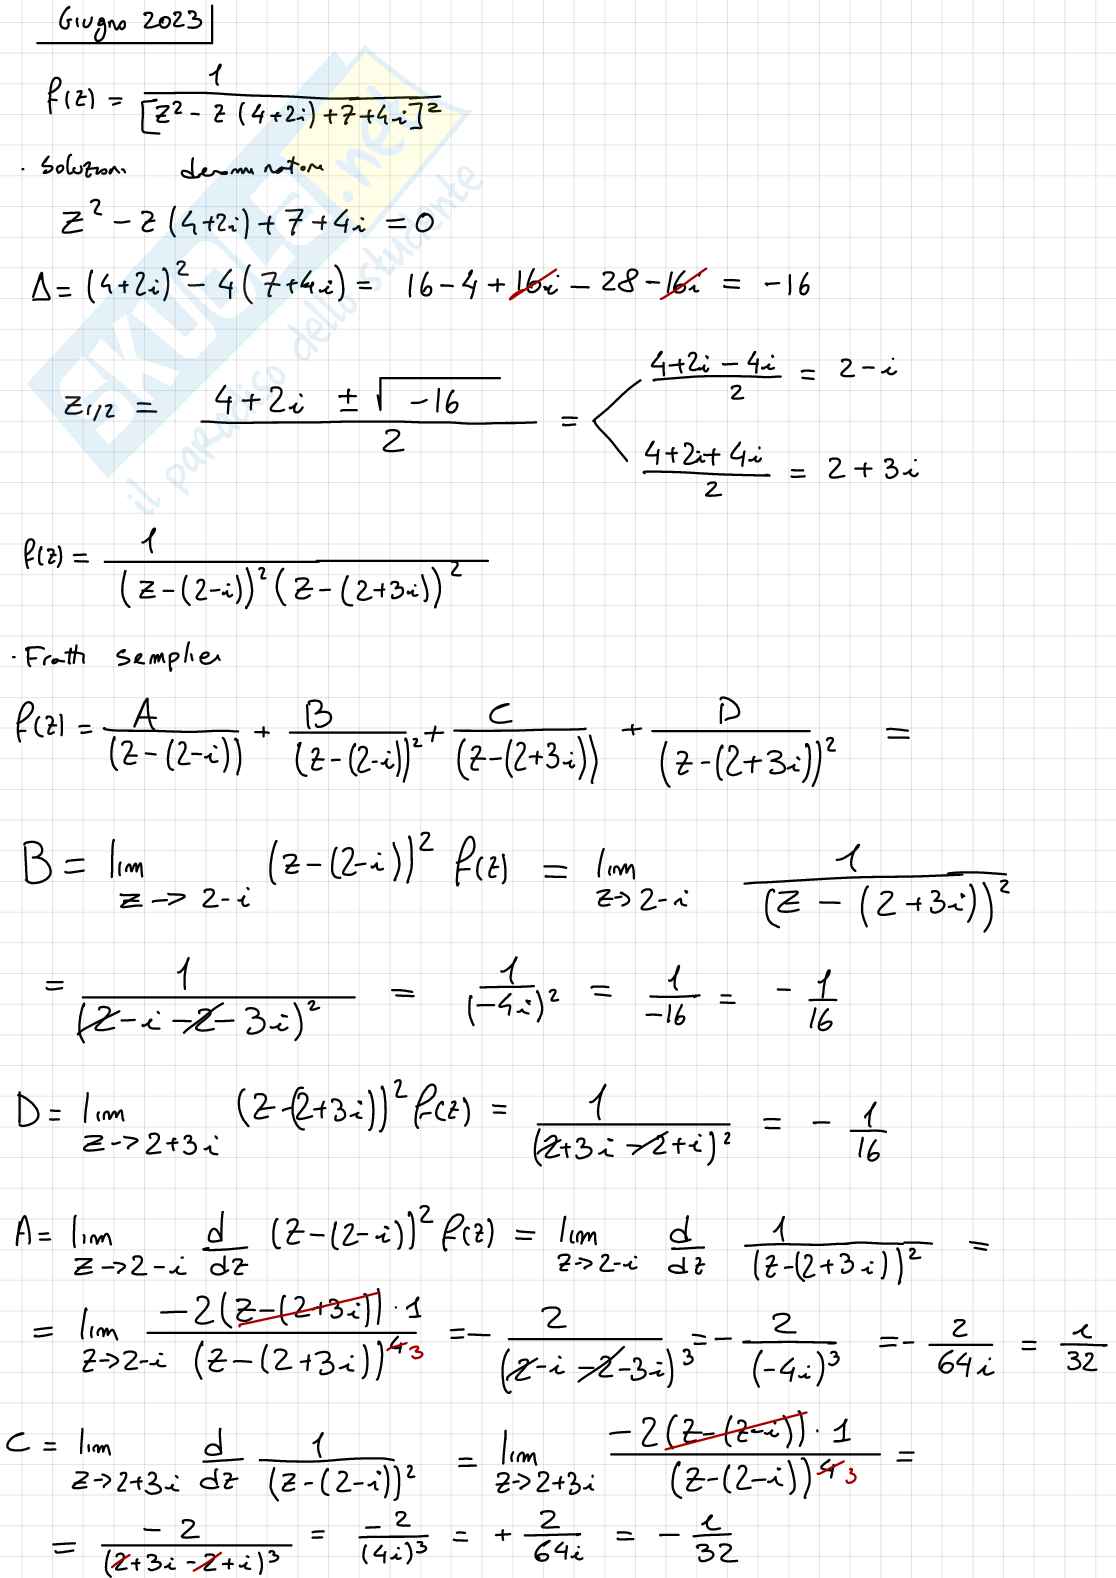 Giugno 2023
f(z) = 1 / [z² - z (4+2i)+7+4i]²
· Soluzioni denominatore
z² - z (4+2i) + 7 + 4i = 0
Δ = (4+2i)² - 4(7+4i) = 16 - 4 + 16i - 28 - 16i = -16
z1/2 = (4+2i ± √-16) / 2 = (4+2i - 4i) / 2 = 2 - i
(4+2i + 4i) / 2 = 2 + 3i
f(z) = 1 / (z-(2-i))² (z-(2+3i))²
· Fratti semplici
f(z) = A / (z-(2-i)) + B / (z-(2-i))² + C / (z-(2+3i)) + D / (z-(2+3i))² =
B = lim z→2-i (z-(2-i))² f(z) = lim z→2-i 1 / (z - (2+3i))²
= 1 / (2-i-2-3i)² = 1 / (-4i)² = 1 / -16 = - 1/16
D = lim z→2+3i (z-(2+3i))² f(z) = 1 / (2+3i-2+i)² = - 1/16
A = lim z→2-i d/dz (z-(2-i))² f(z) = lim z→2-i d/dz 1 / (z-(2+3i))² =
= lim z→2-i -2(z-(2+3i))·1 / (z-(2+3i))⁴ 3 = - 2 / (2-i-2-3i)³ = - 2 / (-4i)³ = - 2 / 64i = i/32
C = lim z→2+3i d/dz 1 / (z-(2-i))² = lim z→2+3i -2(z-(z-i))·1 / (z-(2-i))⁴ 3 =
= -2 / (2+3i-2+i)³ = -2 / (4i)³ = + 2 / 64i = - i/32
SKUOLA.net
il paradiso dello studente